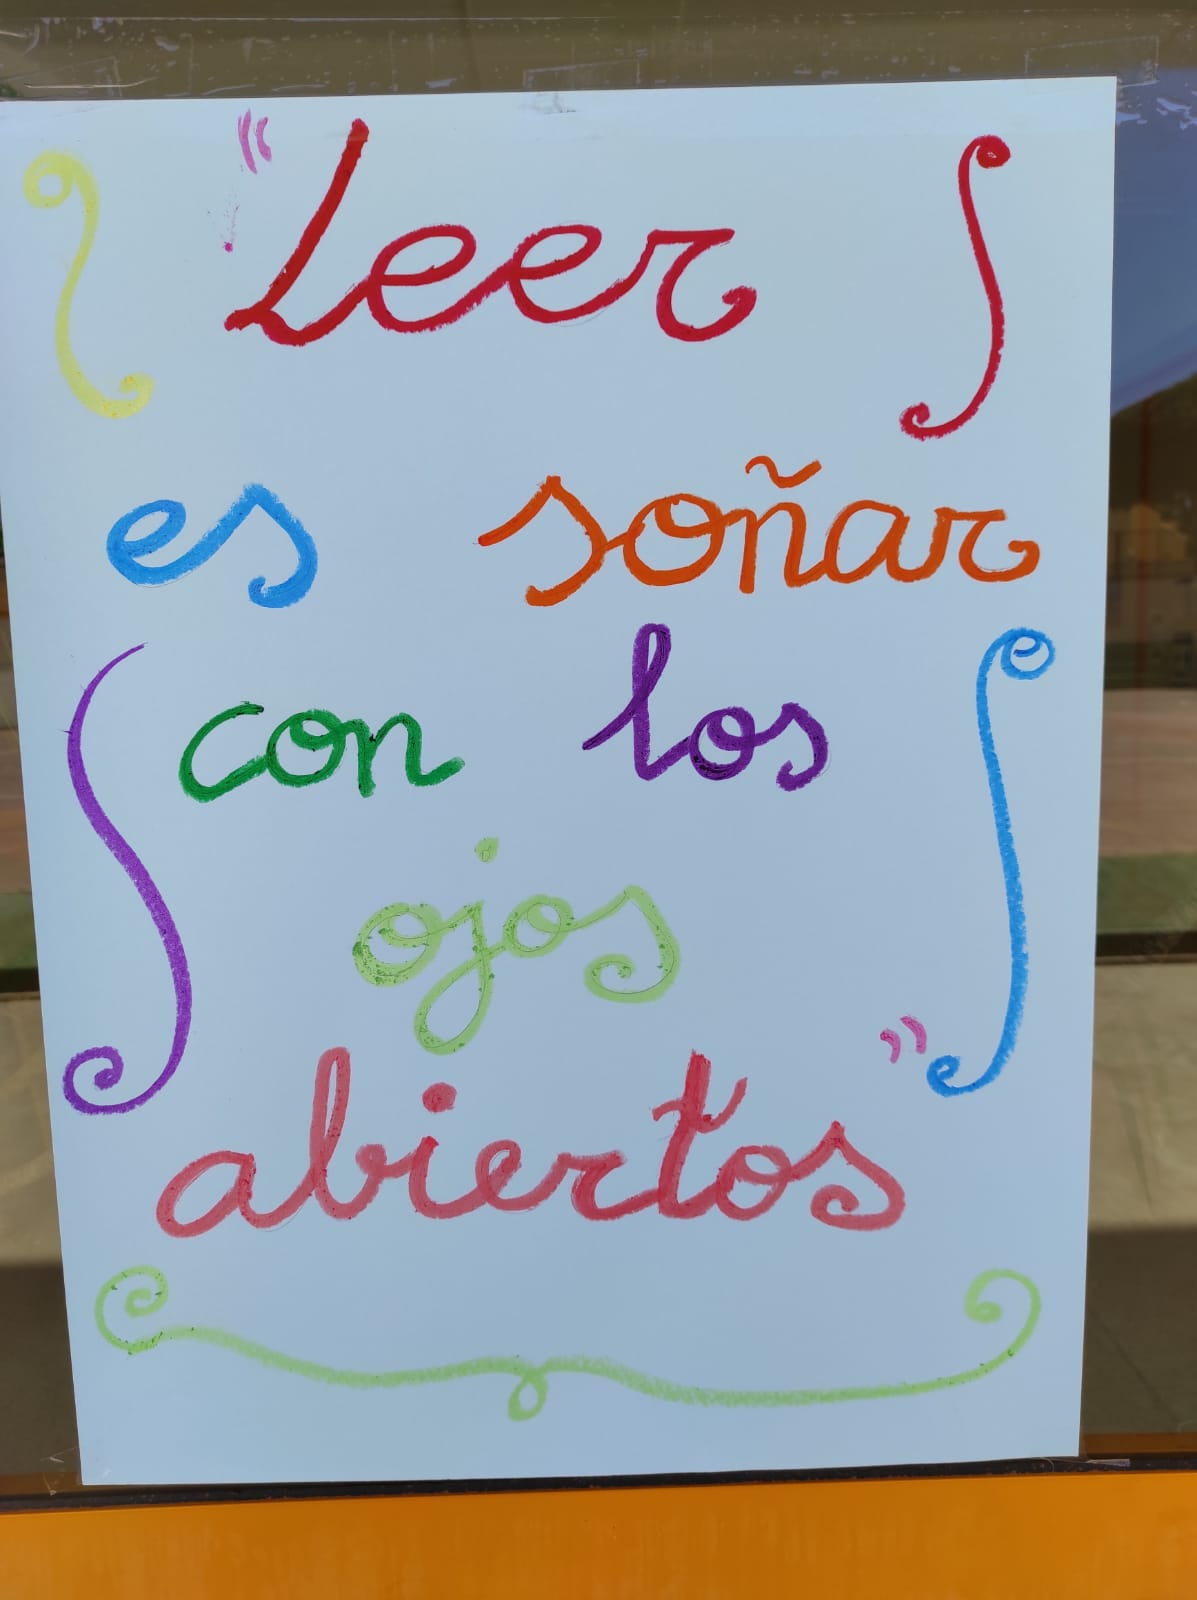 "Leer
es soñar
con los
ojos
abiertos"